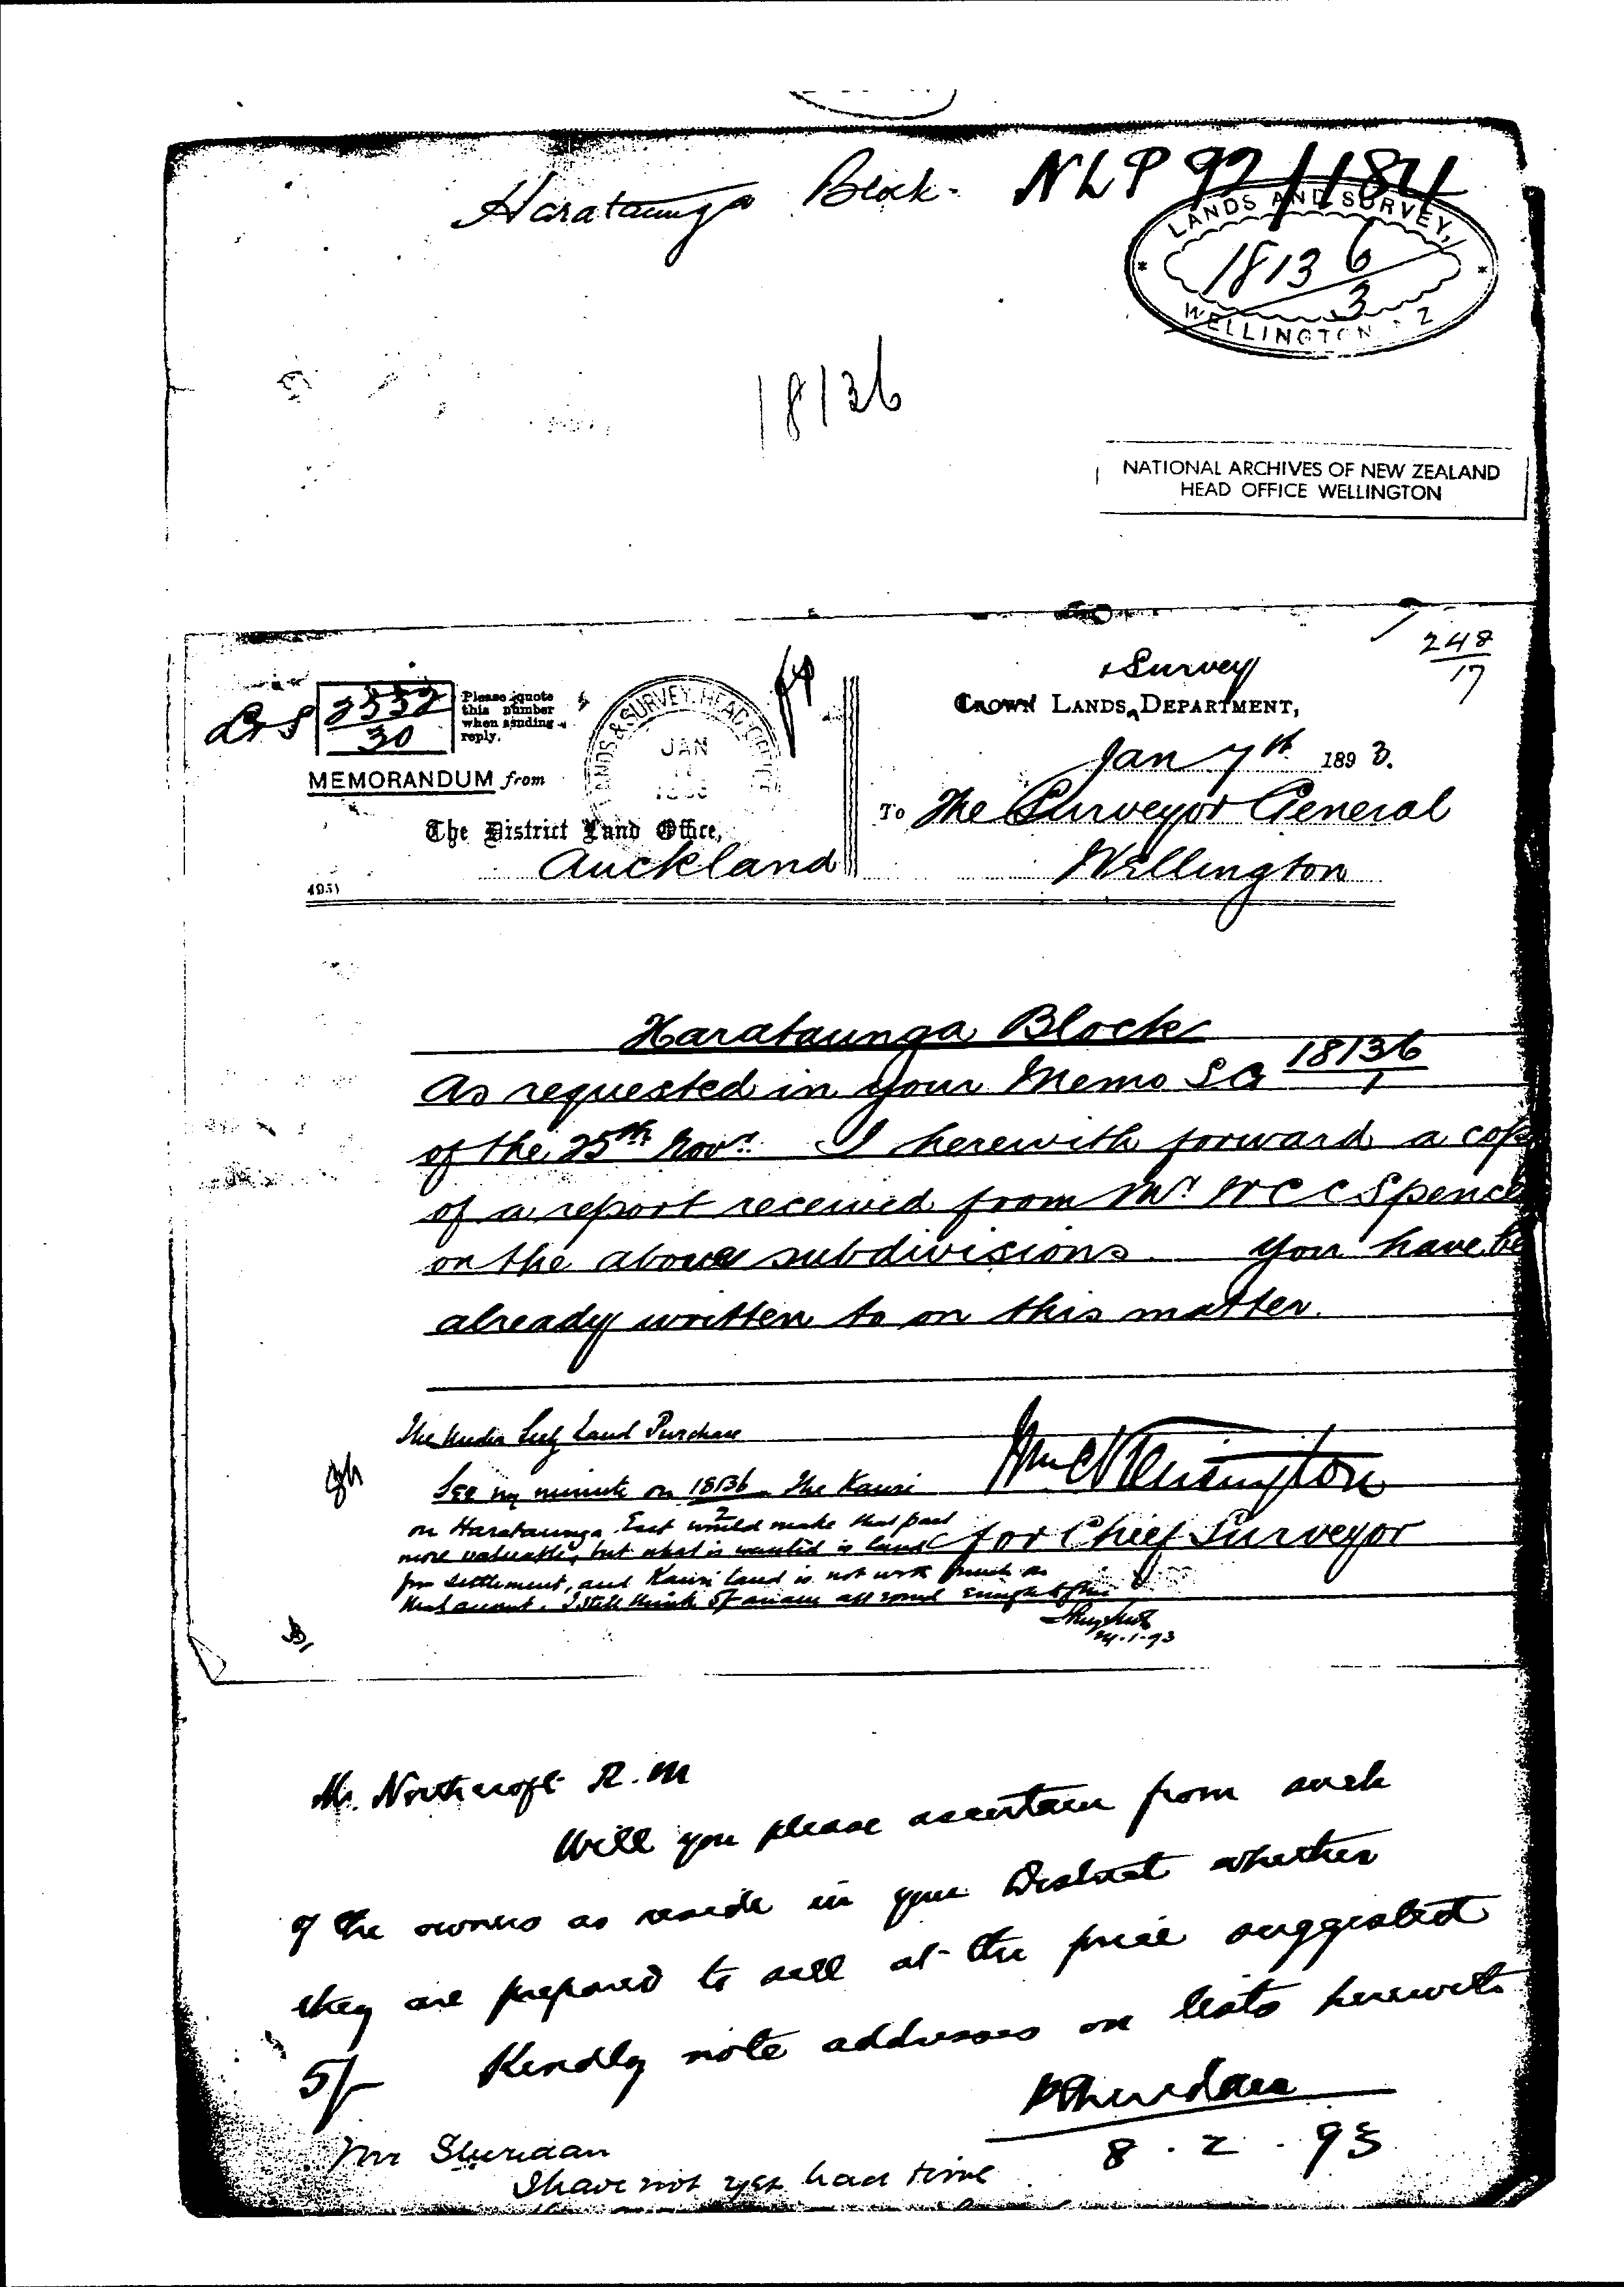 Harataunga Block. NLP 92/184
LANDS AND SURVEY,
18136/3
WELLINGTON Z
18136
NATIONAL ARCHIVES OF NEW ZEALAND
HEAD OFFICE WELLINGTON
248/17
& Survey
CROWN LANDS DEPARTMENT,
2552/30
Please quote
this number
when sending
reply.
LANDS & SURVEY, HEAD OFFICE
JAN
Jan 7th 1893.
MEMORANDUM from
The District Land Office,
Auckland
To The Surveyor General
Wellington
4951
Harataunga Block
As requested in your Memo SG 18136/1
of the 25th Novr. I herewith forward a cop
of a report received from Mr W C C Spence
on the above subdivisions. You have be
already written to on this matter.
The Under Secy Land Purchase
See my minute on 18136/2 The Kauri
on Harataunga East would make that part
more valuable, but what is wanted is land
for settlement, and Kauri land is not worth much on
that account. I still think 5/ an acre all round enough
24.1.93
Wm C Kensington
for Chief Surveyor
Mr. Northcroft R.M
Will you please ascertain from such
of the owners as reside in your District whether
they are prepared to sell at the price suggested
5/- Kindly note addresses on lists herewith
P Sheridan
8.2.93
Mr Sheridan
I have not yet had time